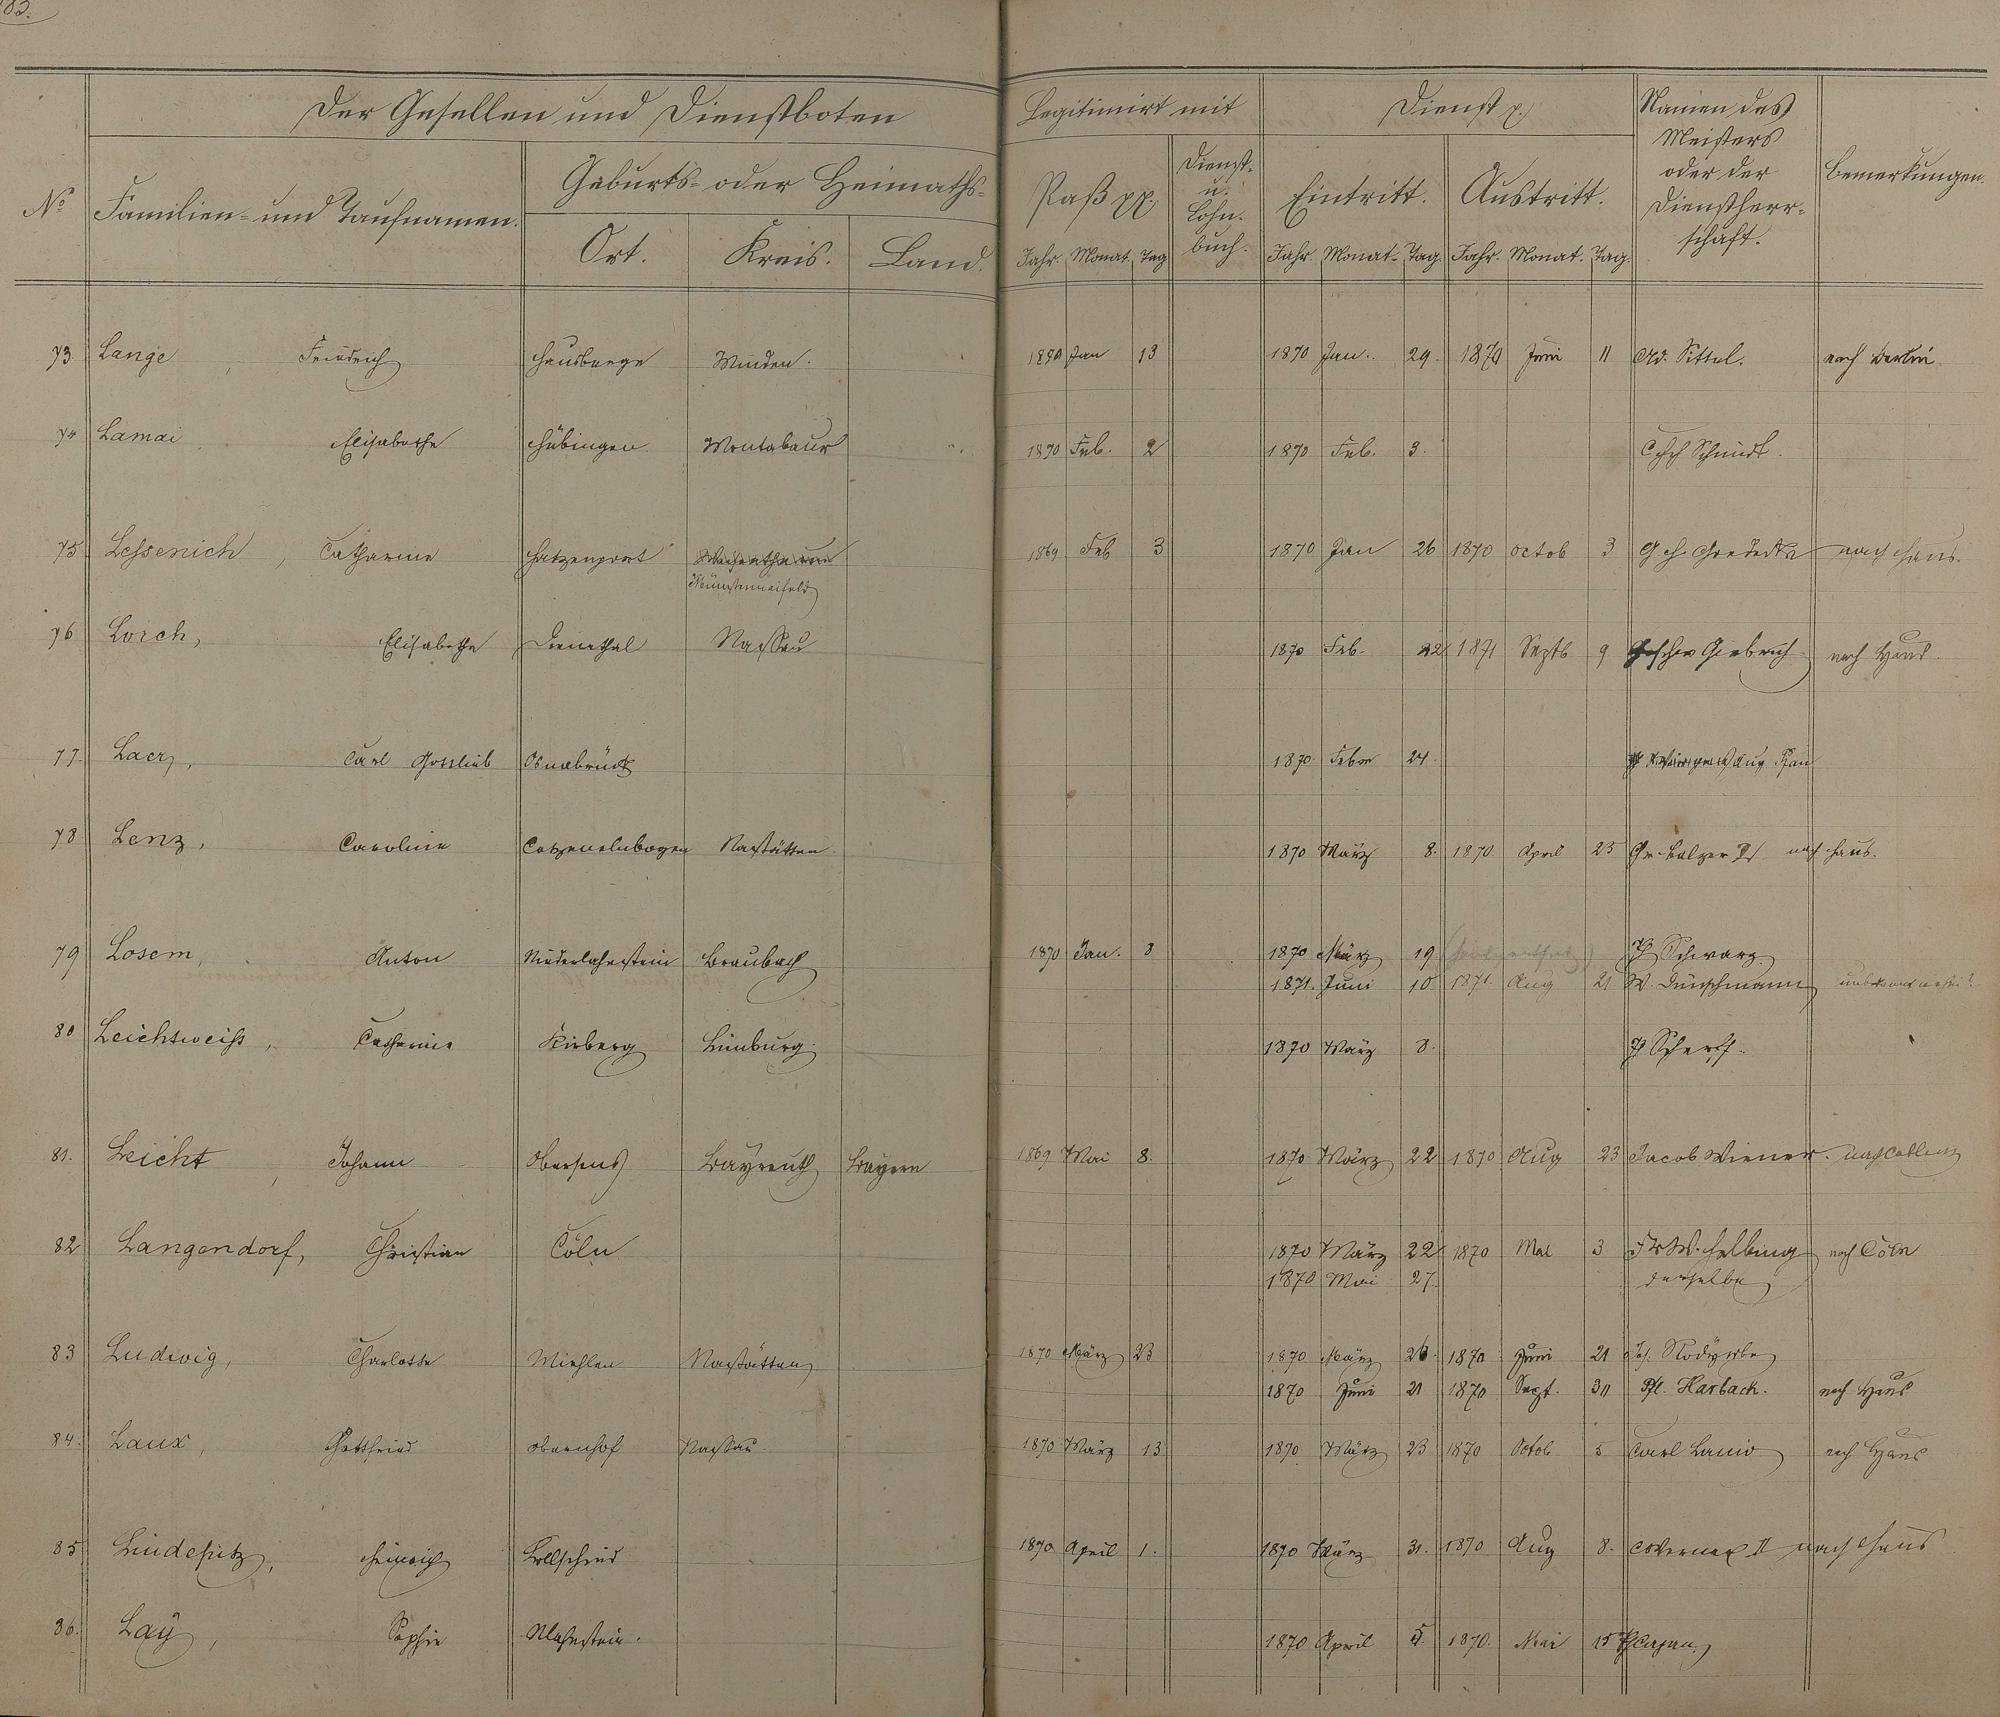 Der Gesellen und Dienstboten
Legitimirt mit
Dienst p.
Namen des
Meisters
oder der
Dienstherr-
schaft.
Bemerkungen.
No
Familien- und Taufnamen.
Geburts- oder Heimaths-
Ort. Kreis. Land.
Paß pp.
Dienst-
u.
Lohn-
buch.
Eintritt. Austritt.
Jahr. Monat. Tag
Jahr. Monat. Tag. Jahr. Monat. Tag.
73. Lange, Friedrich Hausberge Minden. 1870 Jan 13 1870 Jan. 29. 1870 Juni 11 Ad. Sittel. nach Berlin
74 Lamai Elisabethe Hübingen Montabaur 1870 Feb. 2 1870 Feb. 3. Schmidt.
75 Lessenich, Catharine Hatzenport 1869 Feb 3 1870 Jan 26 1870 Octob 3 nach Haus.
Münstermaifeld
76 Lorch, Elisabethe Dienethal Nassau 1870 Feb. 22 1871 Septb 9 nach Haus.
77. Lacr, Carl Gottlieb Osnabrück 1870 Febr 24. Aug
78 Lenz, Caroline Catzenelnbogen Nastätten 1870 März 8. 1870 April 25 Balzer nach Haus.
79 Losem, Anton Niederlahnstein Braubach 1870 Jan. 8 1870 März 19 Schwarz.
1871. Juni 10 1871. Aug 21 W. Dünschmann
80 Leichtweiss, Catharine Kirberg Limburg. 1870 März 8. Scharf.
81. Leicht, Johann Bayreuth Bayern 1869 Mai 8. 1870 März 22 1870 Aug 23 Jacob Wiener. nach Coblenz
82 Langendorf, Christian Cöln 1870 März 22 1870 Mai 3 Helbing nach Cöln
1870 Mai 27. derselbe
83 Ludwig, Charlotte Miehlen Nastätten 1870 März 23 1870 März 26. 1870 Juni 21
1870 Juni 21 1870 Sept. 30 Harbach. nach Haus
84. Laux, Gottfried Obernhof Nassau 1870 März 13 1870 März 23 1870 Octob 5 Carl Lanio nach Haus
85 Lindepütz, Heinrich Kollscheid 1870 April 1. 1870 März 31. 1870 Aug 8. Werner II nach Haus
86. Lay, Sophie NLahnstein. 1870 April 5. 1870. Mai 15